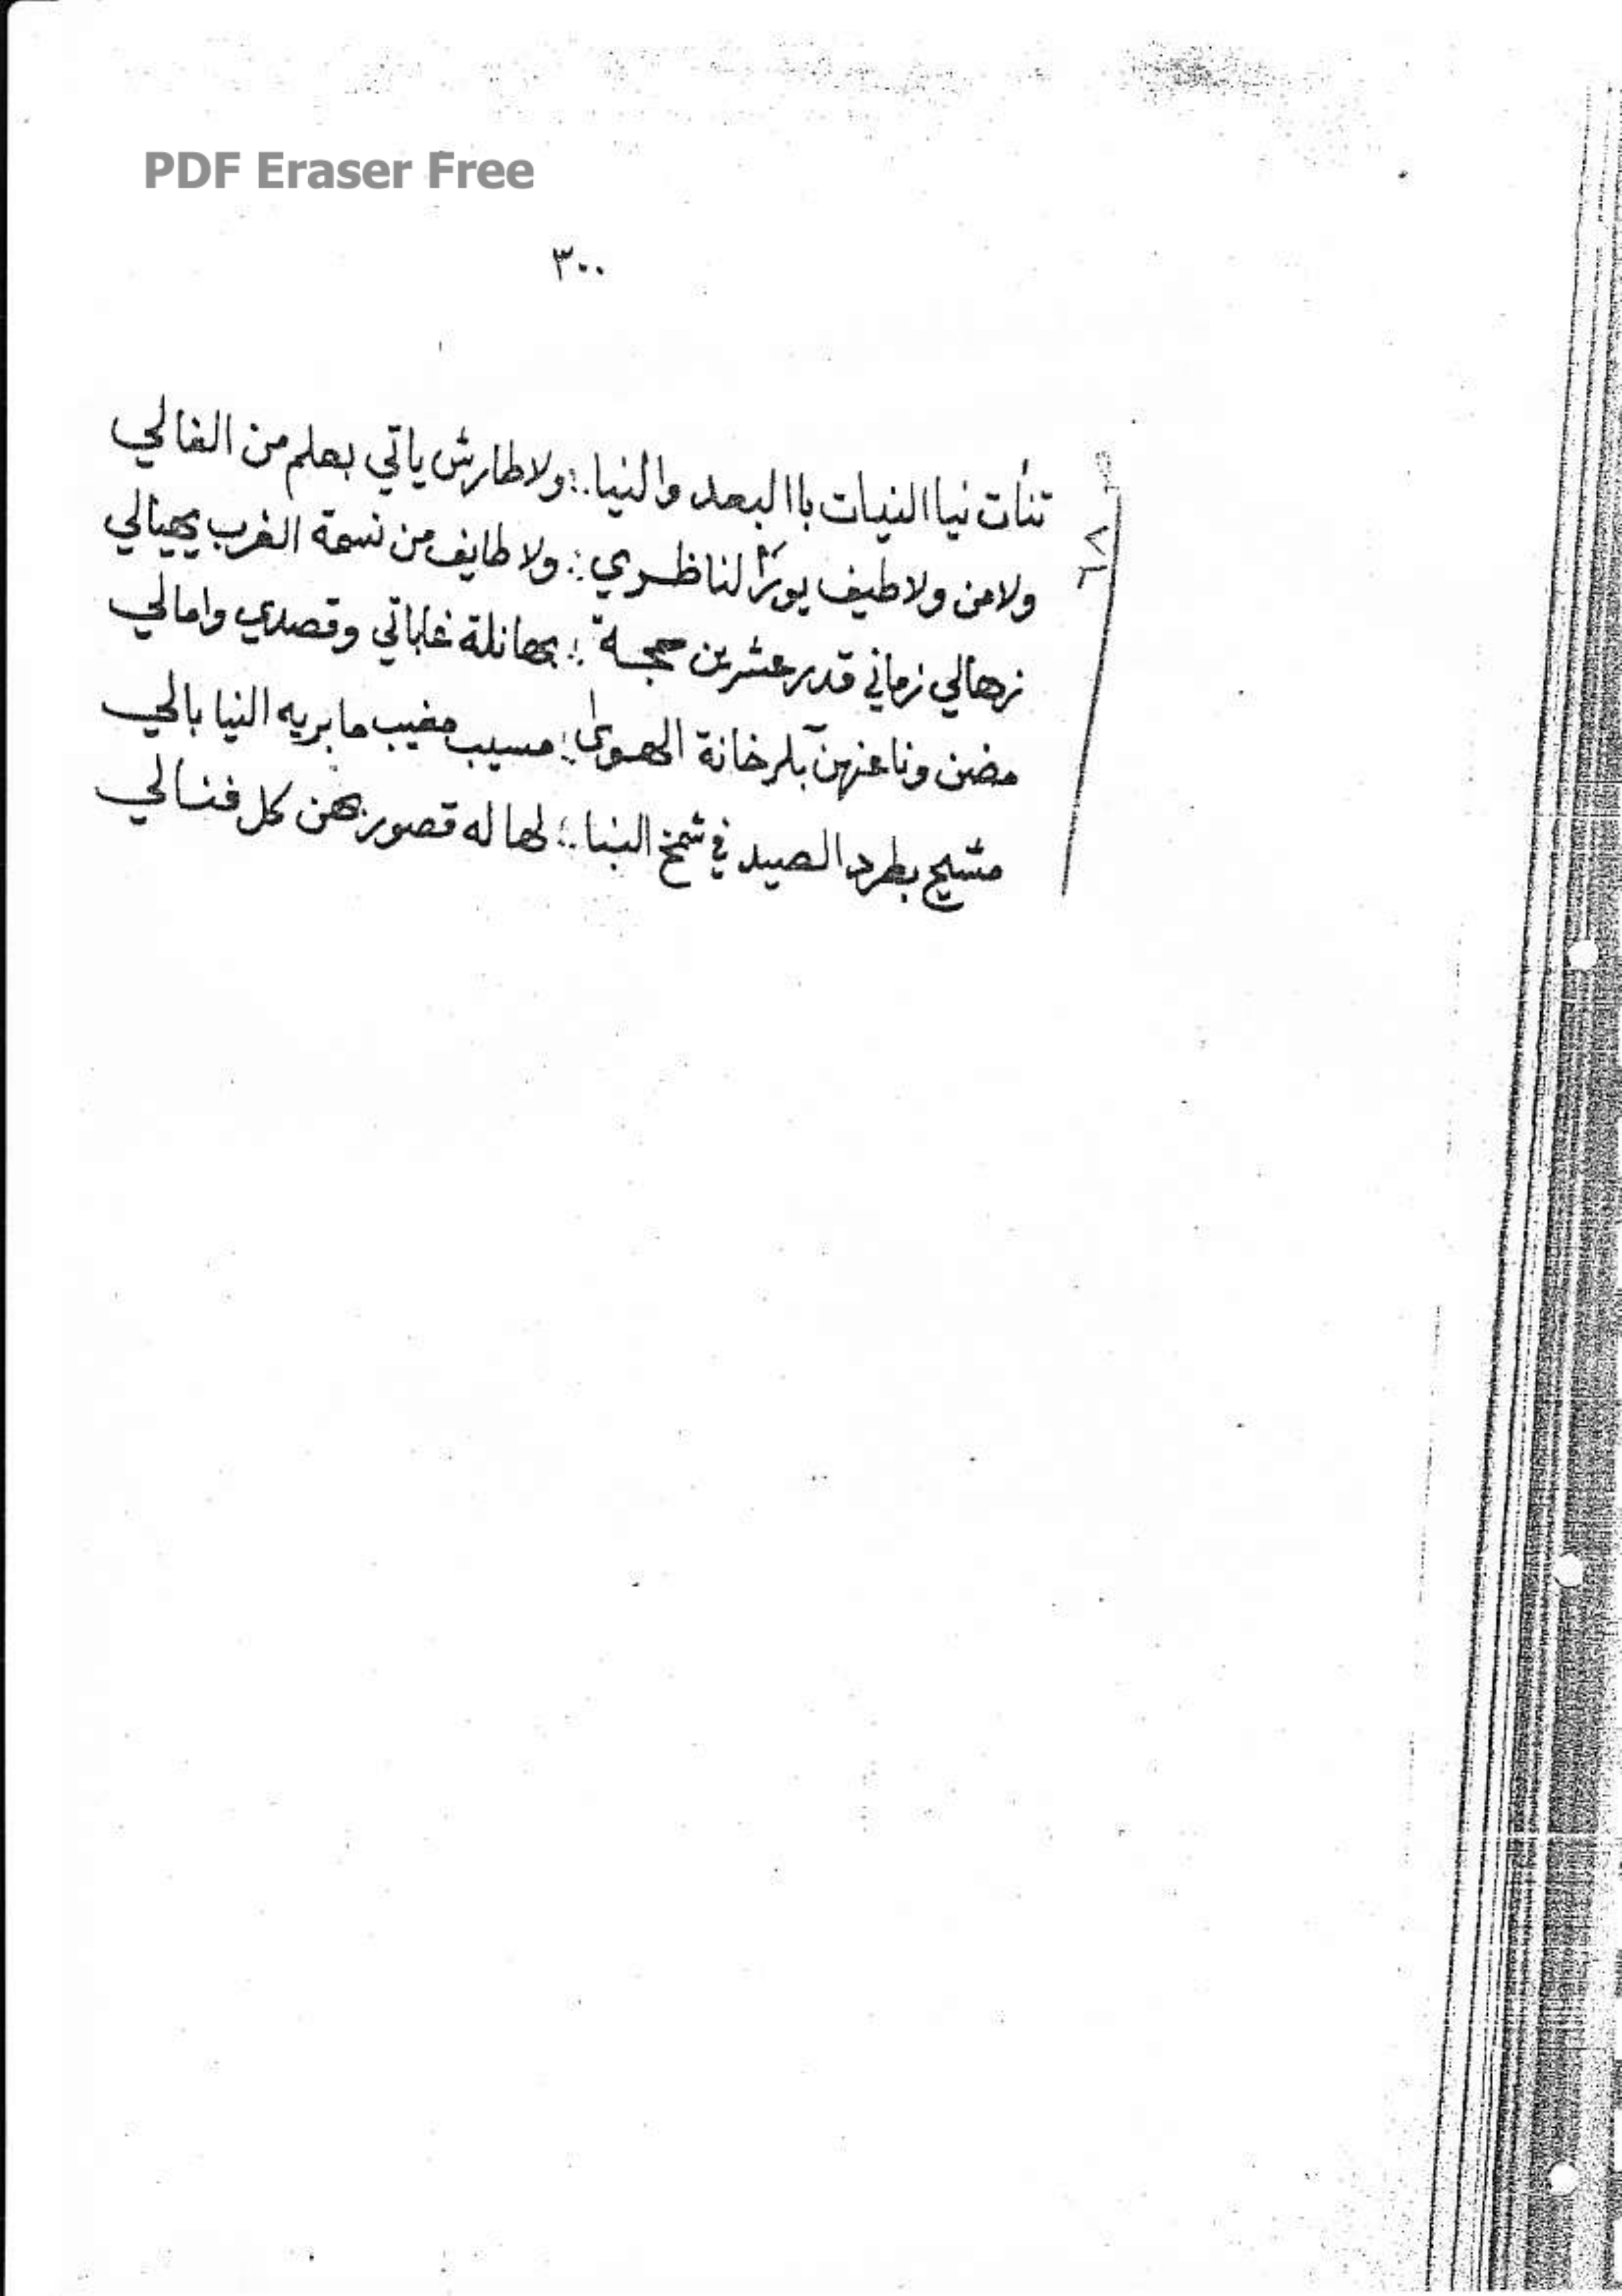 PDF Eraser Free
٣٠٠
تنأت نيا النيات باالبعد والنيا ∴ ولا طارش ياتي بعلم من الغالي
ولا من ولا طيف يورّا لناظري ∴ ولا طايف من نسمة الغرب يحيالي
زهالي زماني قدر عشرين حجة ∴ بها نلة غاياتي وقصدي وامالي
مضن ونا عنهن بلرخانة الهوى ∴ مسيب مغيب ما بريه النيا بالي
مشيح بطرد الصيد في شمخ البنا ∴ لها له قصور بهن كل فنالي